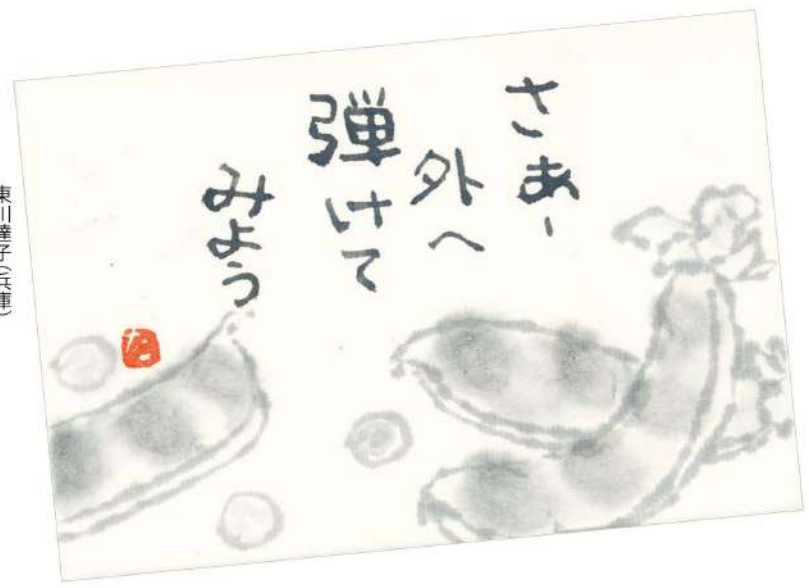 さあー
外へ
弾けて
みよう
東川達子(兵庫)